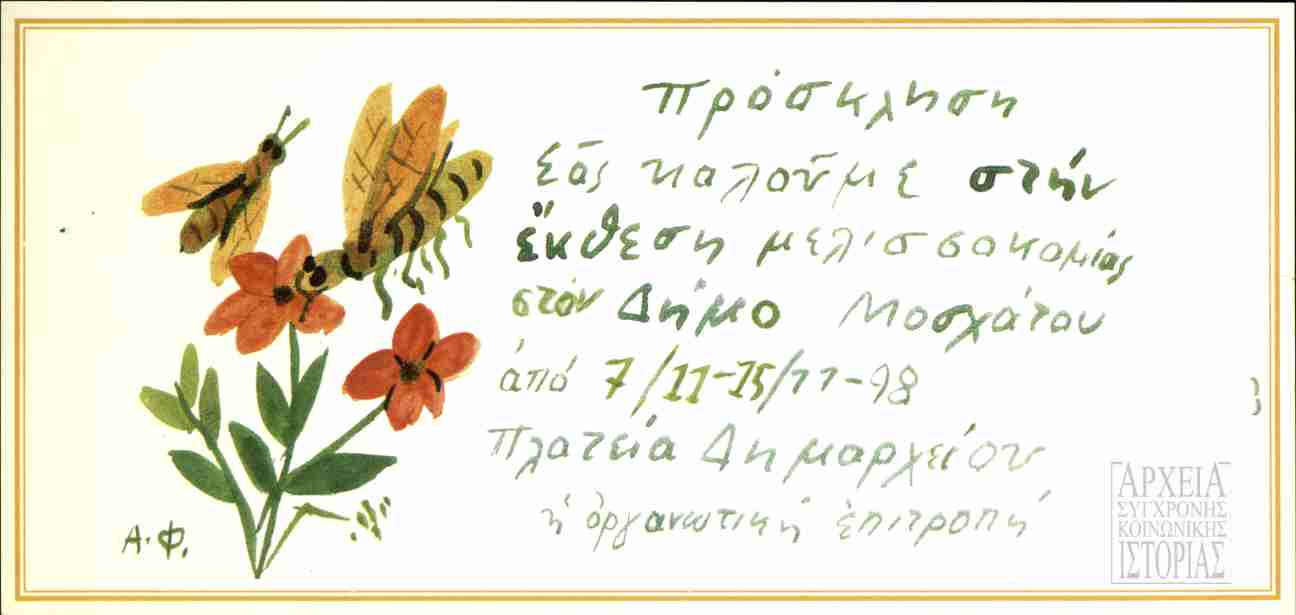 πρόσκληση
Σᾶς καλοῦμε στήν
ἔκθεση μελισσοκομίας
στόν Δήμο Μοσχάτου
ἀπό 7/11-15/11-98
Πλατεία Δημαρχείου
ἡ ὀργανωτική ἐπιτροπή
Α.Φ.
ΑΡΧΕΙΑ
ΣΥΓΧΡΟΝΗΣ
ΚΟΙΝΩΝΙΚΗΣ
ΙΣΤΟΡΙΑΣ